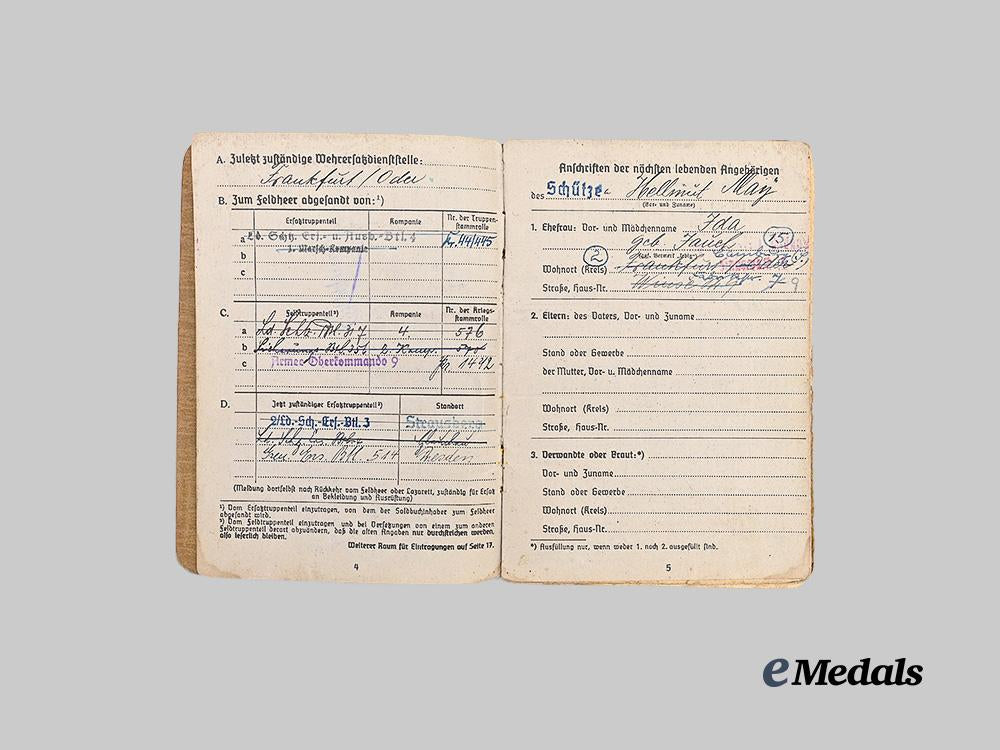 A. Zuletzt zuständige Wehrersatzdienststelle:
Frankfurt / Oder
B. Zum Feldheer abgesandt von:¹)
Ersatztruppenteil Kompanie Nr. der Truppen-stammrolle
a Ld. Schtz. Ers.- u. Ausb.-Btl. 4 44/445
1. Marsch-Kompanie
b
c
C. Feldtruppenteil²) Kompanie Nr. der Kriegs-stammrolle
a Ld. Schtz. Btl. 317 4. 576
b 2. Komp.
c Armee Oberkommando 9 1442
D. Jetzt zuständiger Ersatztruppenteil³) Standort
2/Ld.-Sch.-Ers.-Btl. 3 Strausberg
Gren. Ers. Btl. 514 Dresden
(Meldung dortselbst nach Rückkehr vom Feldheer oder Lazarett, zuständig für Ersatz
an Bekleidung und Ausrüstung)
¹) Vom Ersatztruppenteil einzutragen, von dem der Soldbuchinhaber zum Feldheer
abgesandt wird.
²) Vom Feldtruppenteil einzutragen und bei Versetzungen von einem zum anderen
Feldtruppenteil derart abzuändern, daß die alten Angaben nur durchstrichen werden,
also leserlich bleiben.
Weiterer Raum für Eintragungen auf Seite 17.
4
Anschriften der nächsten lebenden Angehörigen
des Schütze Hellmut May
(Vor- und Zuname)
1. Ehefrau: Vor- und Mädchenname Ida
geb.
15
2
Wohnort (Kreis) Frankfurt / Oder
Straße, Haus-Nr.
2. Eltern: des Vaters, Vor- und Zuname
Stand oder Gewerbe
der Mutter, Vor- u. Mädchenname
Wohnort (Kreis)
Straße, Haus-Nr.
3. Verwandte oder Braut:*)
Vor- und Zuname
Stand oder Gewerbe
Wohnort (Kreis)
Straße, Haus-Nr.
*) Ausfüllung nur, wenn weder 1. noch 2. ausgefüllt sind.
5
eMedals